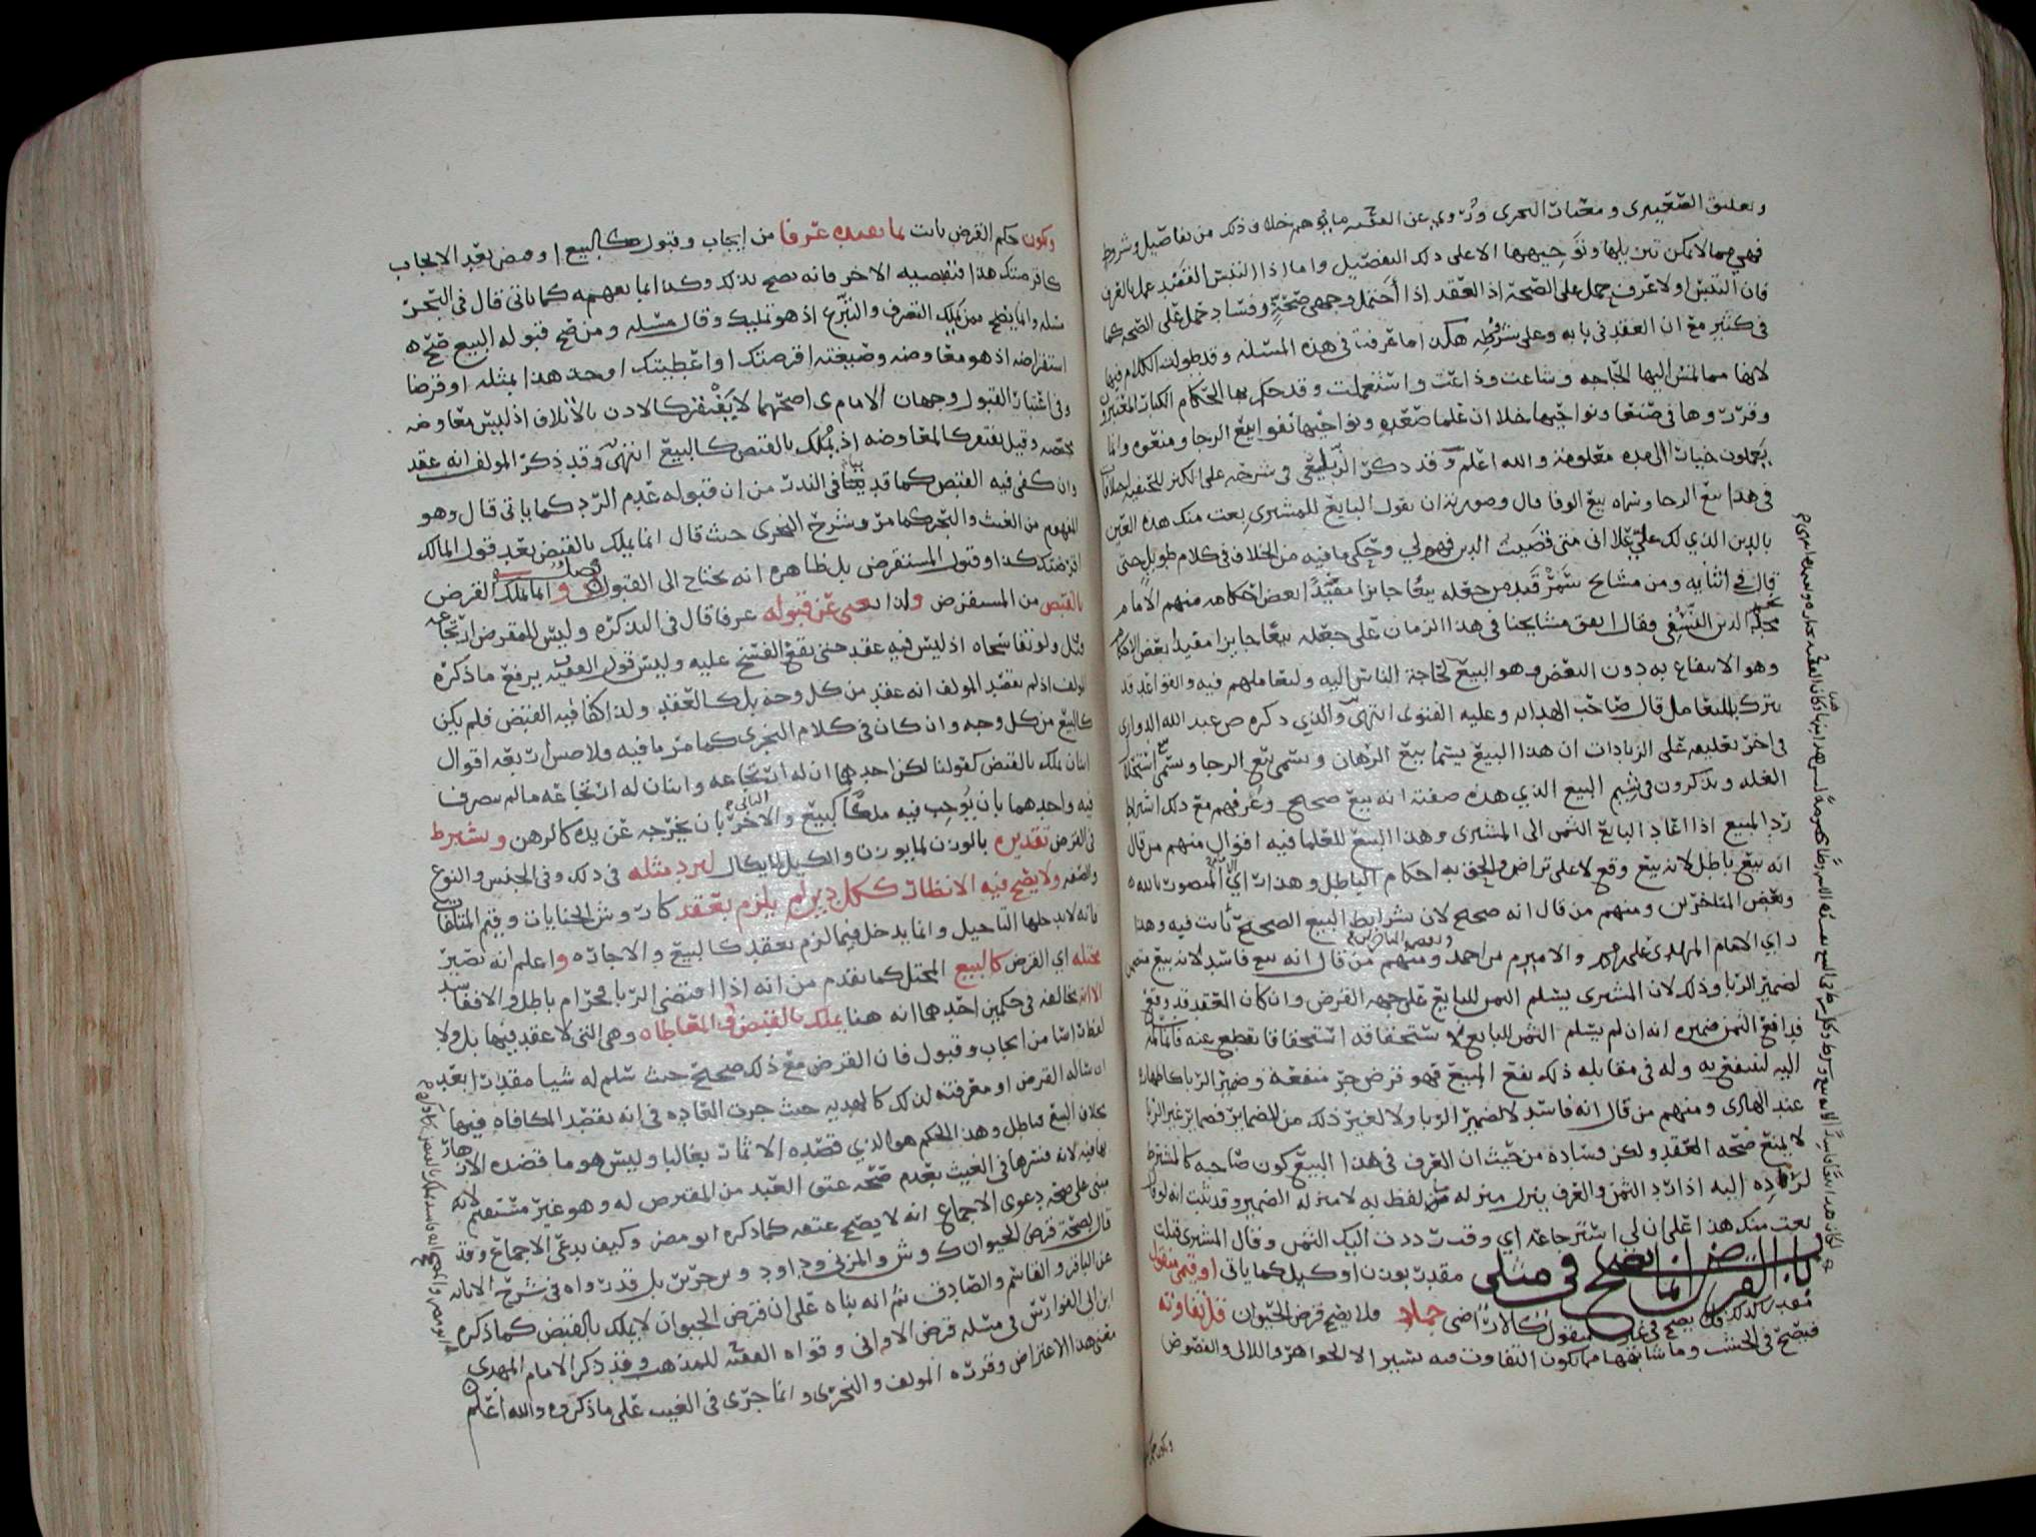 وتعليق الصعيتري ومعيار النجري وروي عن الفقيه ما يوهم خلاف ذلك من تفاصيل وشروط
فهي مما لا يمكن تنزيلها وتوجيهها الا على ذلك التفصيل واما اذا التبس القصد عمل بالعرف
فان التبس او لا عرف حمل على الصحة اذ العقد اذا احتمل وجهي صحة وفساد حمل على الصحة كما
في كثير مع ان العقد في بابه وعلى شرطه هكذا ما عرفت في هذه المسئلة وقد طولت الكلام فيها
لانها مما تمس اليها الحاجه وشاعت وذاعت واستعملت وقد حكم بها الحكام الكبار المعتبرون
وقرروها في صنعا ونواحيها خلا ان علما صعده ونواحيها نفوا بيع الرجا ومنعوه وانما
يعملون خيارا الى مده معلومة والله اعلم وقد ذكر الزيلعي في شرحه على الكنز للحنفيه
في هذا بيع الرجا وسماه بيع الوفا قال وصورته ان يقول البايع للمشتري بعت منك هذه العين
بالدين الذي لك علي على اني متى قضيت الدين فهو لي وحكى ما فيه من الخلاف في كلام طويل حتى
قال في اثنايه ومن مشايخ سمرقند من جعله بيعا جايزا مفيدا لبعض احكامه منهم الامام
نجم الدين النسفي وقال اتفق مشايخنا في هذا الزمان على جعله بيعا جايزا مفيدا بعض الاحكام
وهو الانتفاع به دون البعض وهو البيع لحاجة الناس اليه ولتعاملهم فيه والقواعد قد
تترك بالتعامل قال صاحب الهدايه وعليه الفتوى انتهى والذي ذكره ض عبد الله الدواري
في اخر تعليقه على الزيادات ان هذا البيع يسما بيع الرهان وسمي بيع الرجا وسمي بيع استغلال
الغله ويذكرون في رسم البيع الذي هذه صفته انه بيع صحيح وعرفهم مع ذلك اشتراط
رد المبيع اذا اعاد البايع الثمن الى المشتري وهذا البيع للعلما فيه اقوال منهم من قال
انه بيع باطل لانه بيع وقع لا على تراض والحق به احكام الباطل وهذا راي الامام المنصور بالله
وبعض المتاخرين ومنهم من قال انه صحيح لان شرايط البيع الصحيح ثابت فيه وهذا
راي الامام المهدي علي بن محمد والامير م بن احمد وبعض المتاخرين ومنهم من قال انه بيع فاسد لانه بيع متضمن
لضمير الربا وذلك لان المشتري يسلم الثمن للبايع على جهة القرض وان كان العقد قد وقع
فدافع الثمن ضميره انه ان لم يسلم الثمن للبايع لا يستحقاقه استحقاقا يقطع عنه فانما سلمه
اليه لينتفع به وله في مقابلة ذلك نفع المبيع فهو قرض جر منفعة وضمير الربا كاظهاره
عند الهادي ومنهم من قال انه فاسد لا لضمير الربا ولا لغير ذلك من الضماير فضماير غير الربا
لا يمنع صحة العقد ولكن فساده من حيث ان العرف في هذا البيع كون صاحبه كالمشترط
لرده اليه اذا رد الثمن والعرف ينزل منزلة من لفظ به لا منزله الضمير وقد ثبت انه لو قال
بعت منك هذا على ان لي استرجاعه اي وقت رددت اليك الثمن وقال المشتري قبلت
باب القرض انما يصح في مثلي مقدر بوزن او كيل كما ياتي او قيمي منقول
فلا يصح في غير منقول كالاراضي جماد فلا يصح قرض الحيوان قل تفاوته
فيصح في الخشب وما شابهها مما يكون التفاوت فيه يسيرا لا الجواهر واللالي والفصوص
ويكون حكم
ويكون حكم القرض ثابت بما يعده عرفا من ايجاب وقبول كالبيع او قبض بعد الايجاب
كاقرضتك هذا فتقبضه الاخر فانه يصح بذلك وكذا بما يفهمه كما ياتي قال في البحر
مسئله وانما يصح ممن يملك التصرف والتبرع اذ هو تمليك وقال مسئله ومن صح قبوله البيع صح
استقراضه اذ هو معاوضه وصيغته اقرضتك او اعطيتك او خذ هذا بمثله او قرضا
وفي اعتبار القبول وجهان الامام ي اصحهما لا يفتقر كالاذن بالاتلاف اذ ليس معاوضه
محضه وقيل يفتقر كالمعاوضه اذ يملك بالقبض كالبيع انتهى وقد ذكر المولف انه عقد
وان كفى فيه القبض كما قد بينا في النذر من ان قبوله عدم الرد كما ياتي قال وهو
المفهوم من الغيث والبحر كما مر وشرح النجري حيث قال انما يملك بالقبض بعد قول المالك
اقرضتك كذا وقبول المستقرض بل ظاهره انه يحتاج الى القبول فصل و انما يملك القرض
بالقبض من المستقرض ولذا يغني عن قبوله عرفا قال في التذكره وليس للمقرض ارتجاعه
قيل ولو تفاسخاه اذ ليس فيه عقد حتى يقع الفسخ عليه وليس قول الفقيه يرفع ما ذكره
المولف اذ لم يقصد المولف انه عقد من كل وجه بل كالعقد ولذا كفا فيه القبض فلم يكن
كالبيع من كل وجه وان كان في كلام النجري كما مر ما فيه فلا صار بعه اقوال
اثنان يملك بالقبض كقولنا لكن احدهما ان له ارتجاعه واثنان له ارتجاعه ما لم يتصرف
فيه واحدهما بان يوجب فيه ملكا كبيع والاخر الثاني بان يخرجه عن يده كالرهن ويشترط
في القرض تقديره بالوزن لما يوزن والكيل لما يكال ليرد مثله في ذلك وفي الجنس والنوع
والصفه ولا يصح فيه الانظار ككل دين لم يلزم بعقد كاروش الجنايات وقيم المتلفات
فانه لا يدخلها التاجيل وانما يدخل فيما لزم بعقد كالبيع والاجاره واعلم انه يصير
مختله اي القرض كالبيع المختل كما تقدم من انه اذا اقتضى الربا فحرام باطل والا ففاسد
الا انه يخالفه في حكمين احدهما انه هنا يملك بالقبض وفي المعاطاه وهي التي لا عقد فيها بل ولا
لفظ راسا من ايجاب وقبول فان القرض مع ذلك صحيح حيث سلم له شيا مقدرا بعد
ان ساله القرض او معرفته لذلك كالهديه حيث جرت العاده في انه يقصد المكافاه فيها
بخلاف البيع فباطل وهذا الحكم هو الذي قصده الاثمار بغالبا وليس هو ما قصده الازهار
بها فيه لانه فسرها في الغيث بعدم صحة عتق العبد من المقترض له وهو غير مستقيم لانه
مبني على صحة دعوى الاجماع انه لا يصح عتقه كما ذكره ابو مضر وكيف يدعى الاجماع وقد
قال بصحة قرض الحيوان ك وش والمزني وداود وبن جرير بل قد رواه في شرح الابانه
عن الباقر والقاسم والصادق ثم انه بناه على ان قرض الحيوان لا يملك بالقبض كما ذكره
ابن ابي الفوارس في مسئلة قرض الاواني وقواه الفقيه للمذهب وقد ذكر الامام المهدي
معنى هذا الاعتراض وقرره المولف والنجري وانما جرى في الغيث على ما ذكروه والله اعلم